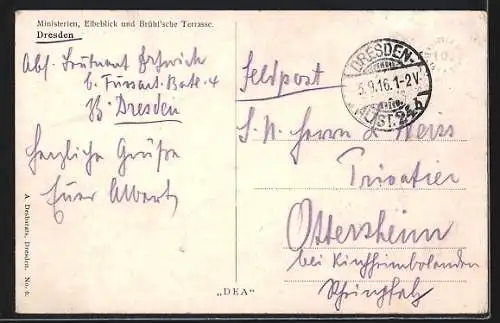 Ministerien, Elbeblick und Brühl'sche Terrasse.
Dresden
Abs. Leutnant
b. Fussart. Batr. 4
Dresden
Herzliche Grüße
Euer Albert
A Dechorats, Dresden. No. 6.
"DEA"
Feldpost
DRESDEN-
5.9.16.1-2V
ALTST. 24 b
S. H. Herrn Weiss
Privatier
Ottersheim
bei Kirchheimbolanden
Rheinpfalz